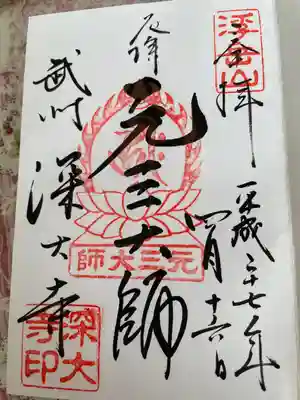 浮岳山
奉拝
平成二十七年
四月十六日
厄除
元三大師
師大三元
武州
深大寺
深大
寺印